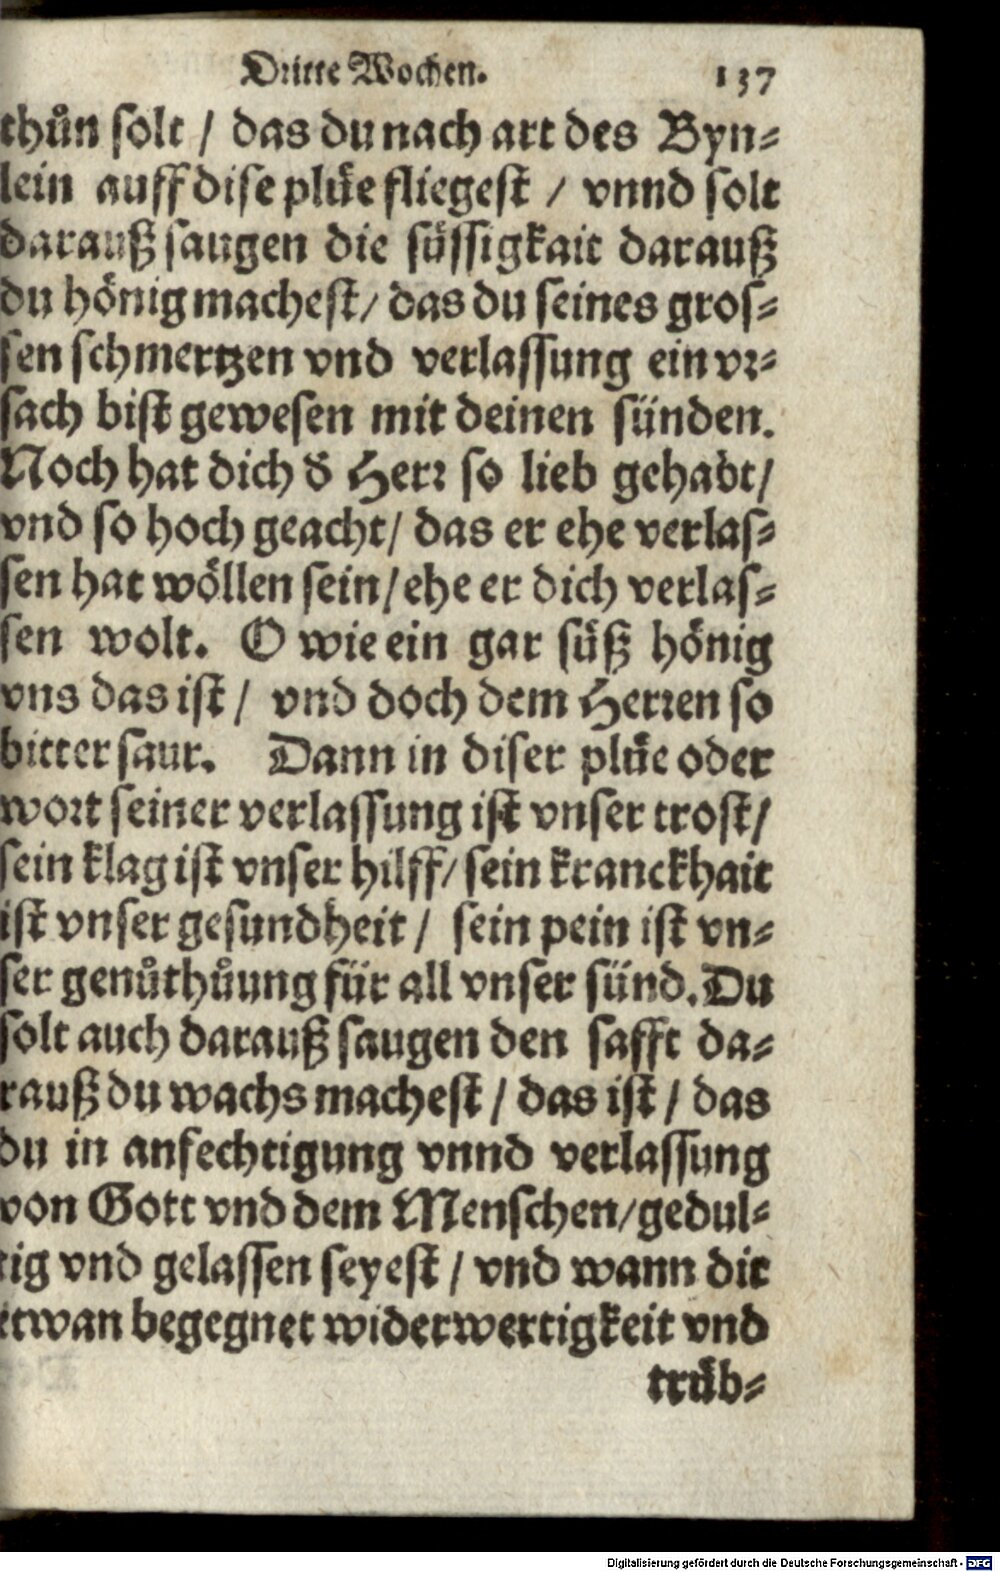 Dritte Wochen. 137
thůn solt / das du nach art des Byn⸗
lein auff dise plüe fliegest / vnnd solt
darauß saugen die süssigkait darauß
du hönig machest / das du seines gros⸗
sen schmertzen vnd verlassung ein vr⸗
sach bist gewesen mit deinen sünden.
Noch hat dich d̕ Herr so lieb gehabt /
vnd so hoch geacht / das er ehe verlas⸗
sen hat wöllen sein / ehe er dich verlas⸗
sen wolt. O wie ein gar süß hönig
vns das ist / vnd doch dem Herren so
bitter saur. Dann in diser plüe oder
wort seiner verlassung ist vnser trost /
sein klag ist vnser hilff / sein kranckhait
ist vnser gesundheit / sein pein ist vn⸗
ser genůthůung für all vnser sünd. Du
solt auch darauß saugen den safft da⸗
rauß du wachs machest / das ist / das
du in anfechtigung vnnd verlassung
von Gott vnd dem Menschen / gedul⸗
tig vnd gelassen seyest / vnd wann dir
etwan begegnet widerwertigkeit vnd
trüb⸗
Digitalisierung gefördert durch die Deutsche Forschungsgemeinschaft - DFG